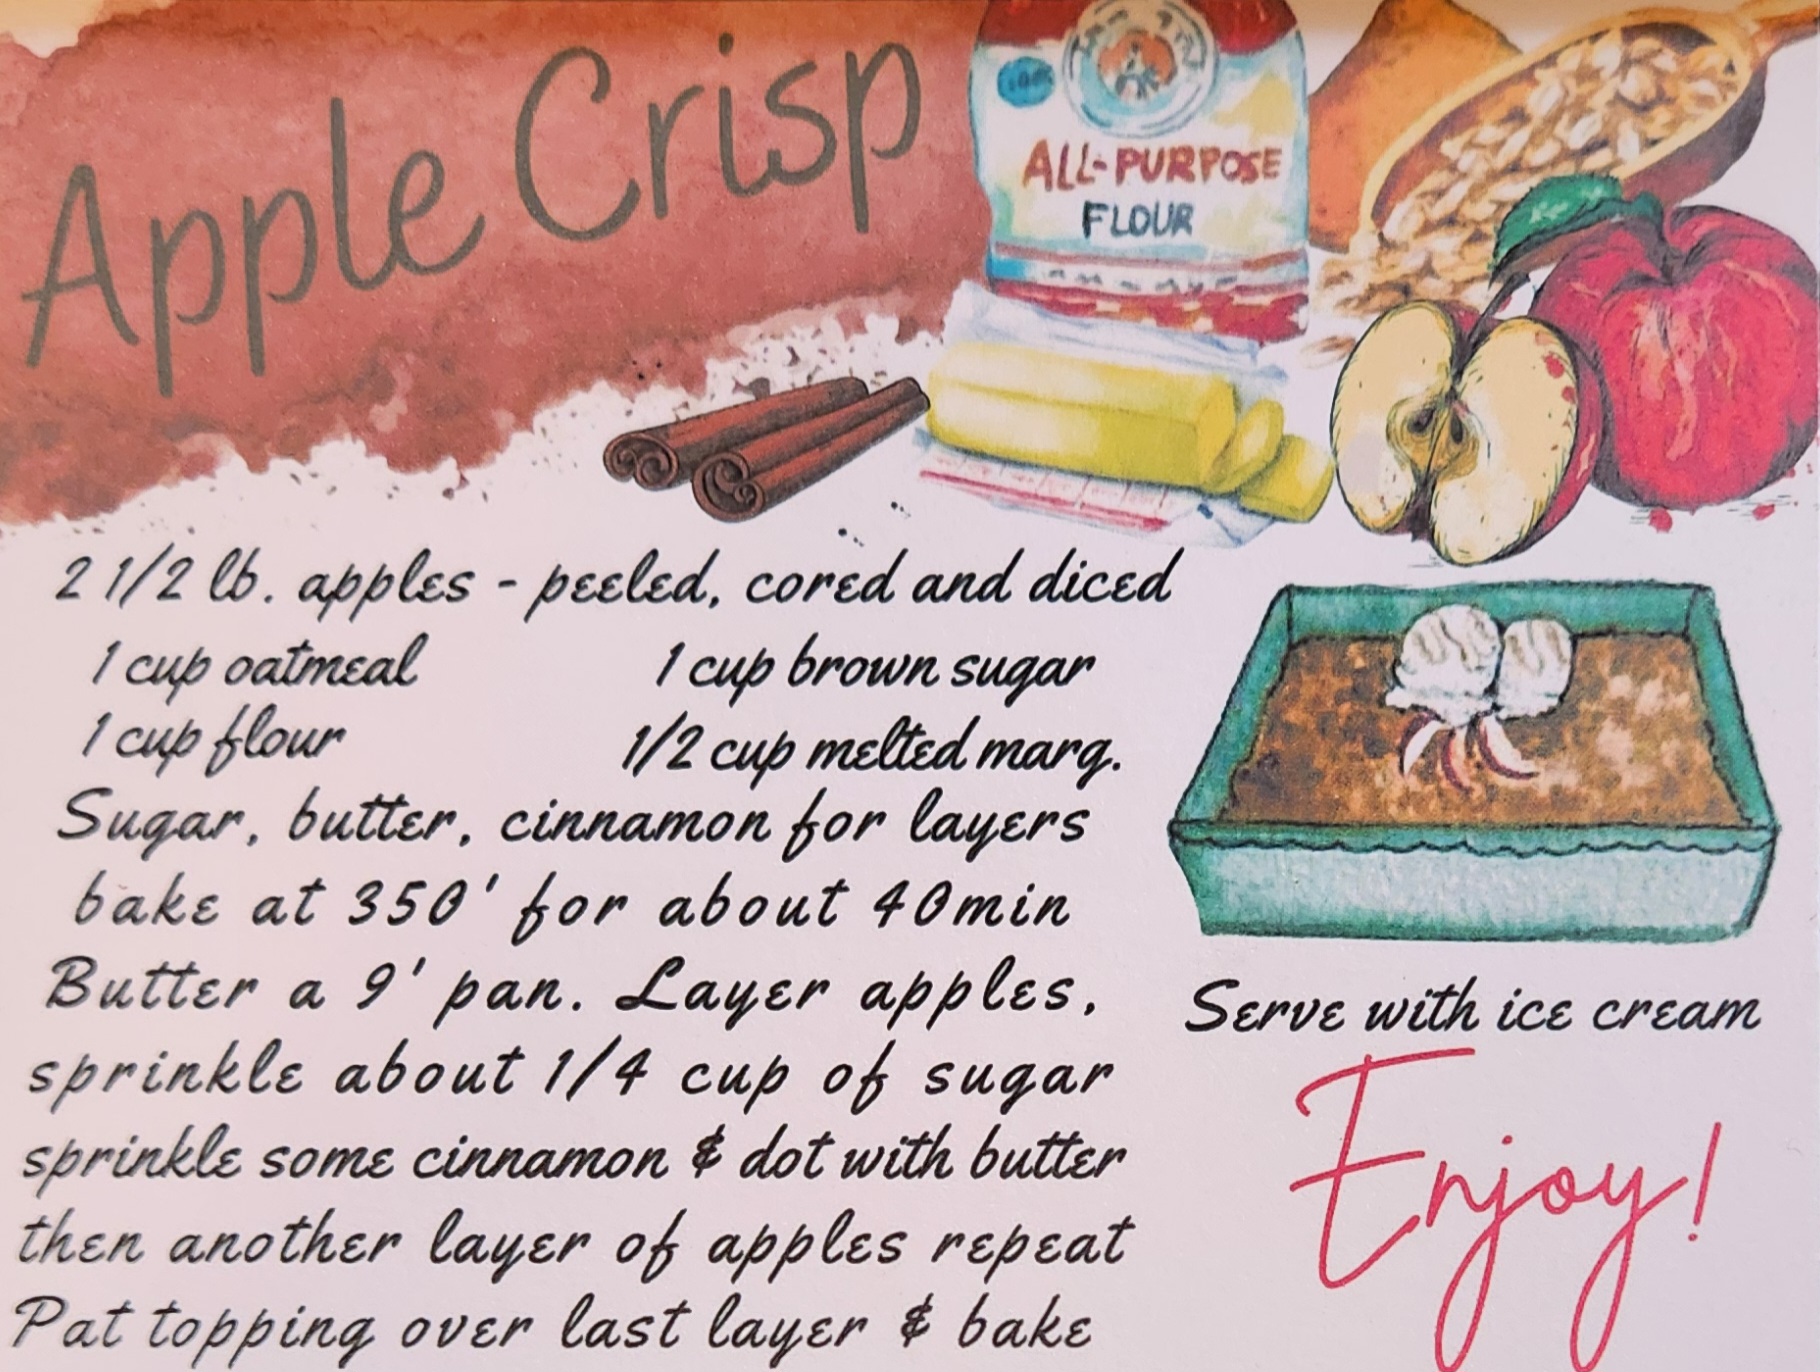 Apple Crisp
ALL-PURPOSE
FLOUR
2 1/2 lb. apples - peeled, cored and diced
1 cup oatmeal 1 cup brown sugar
1 cup flour 1/2 cup melted marg.
Sugar, butter, cinnamon for layers
bake at 350' for about 40min
Butter a 9' pan. Layer apples,
sprinkle about 1/4 cup of sugar
sprinkle some cinnamon & dot with butter
then another layer of apples repeat
Pat topping over last layer & bake
Serve with ice cream
Enjoy!